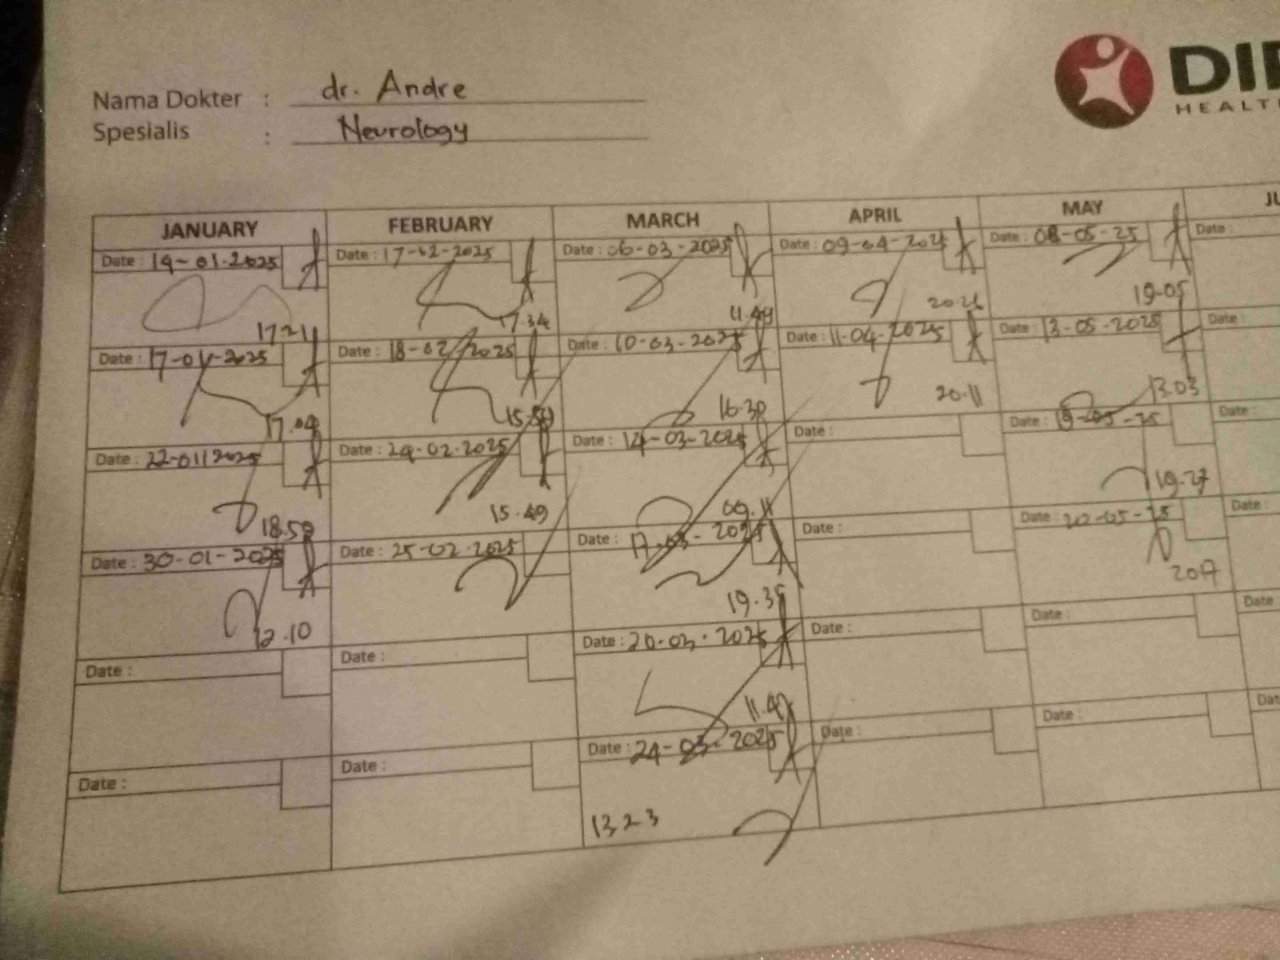 Nama Dokter : dr. Andre
Spesialis : Neurology
DI
HEALT
JANUARY FEBRUARY MARCH APRIL MAY JU
Date : 14-01-2025 Date : 17-02-2025 Date : 06-03-2025 Date : 09-04-2025 Date : 08-05-25 Date :
17.21 17.34 11.49 20.26 19.05
Date : 17-01-2025 Date : 18-02-2025 Date : 10-03-2025 Date : 11-04-2025 Date : 13-05-2025 Date :
17.04 15.59 16.30 20.11 13.03
Date : 22-01-2025 Date : 24-02-2025 Date : 14-03-2025 Date : Date : 19-05-25 Date :
18.59 15.49 09.11 19.27
Date : 30-01-2025 Date : 25-02-2025 Date : 17-03-2025 Date : Date : 20-05-25 Date :
12.10 19.35 2017
Date : Date : Date : 20-03-2025 Date : Date : Date
Date : Date : Date : 24-03-2025 Date : Date : Dat
13.23